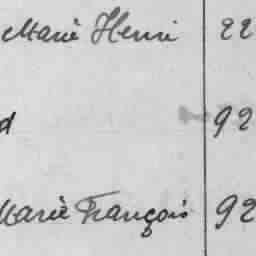 Marie Henri 22
d 92
Marie François 92